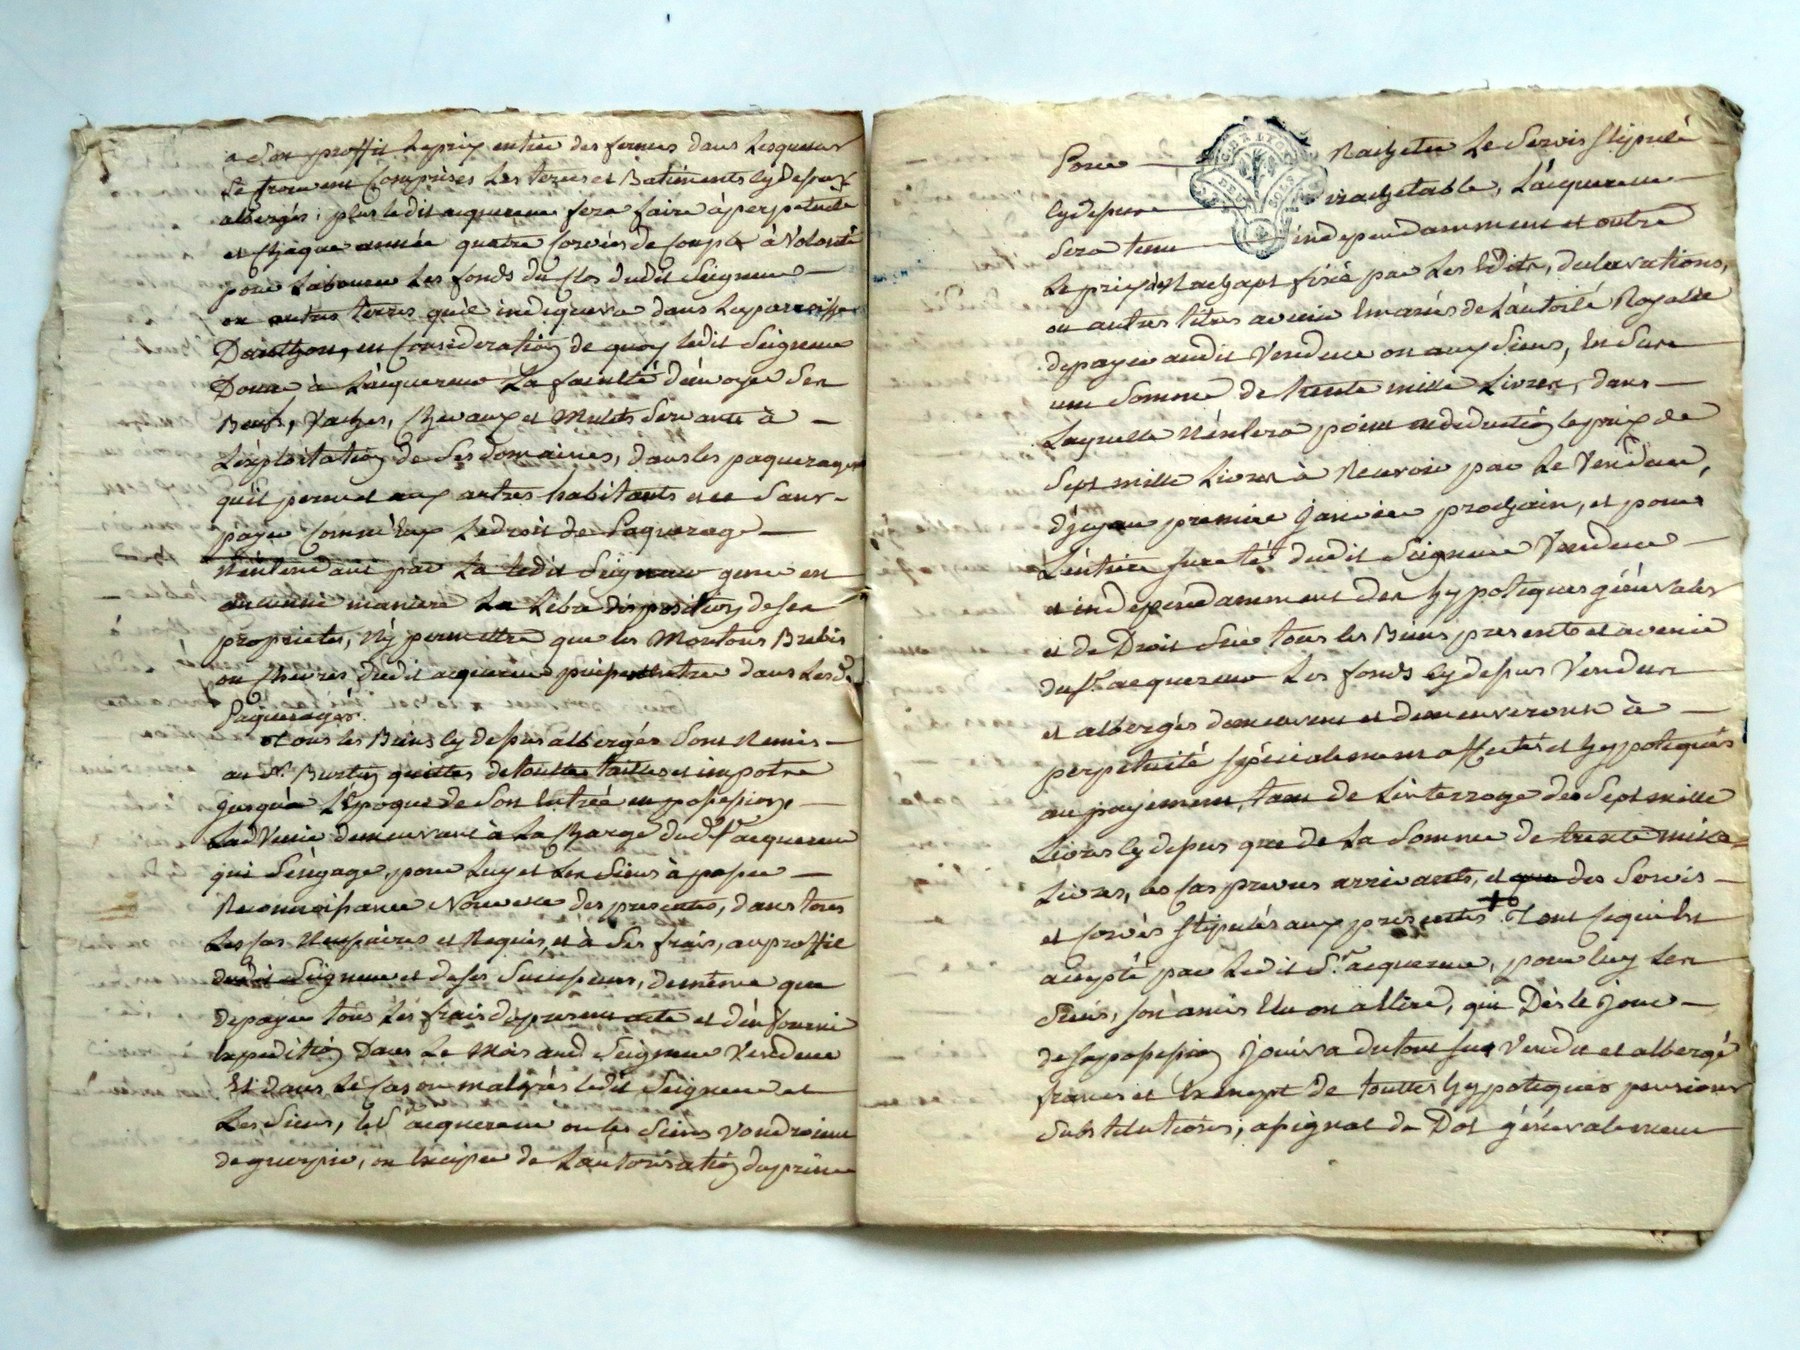 a Son proffit Le prix entier des fermes dans Lesquelles
Se trouvent Comprises Les terres et Batiments cy dessus
albergés, plus ledit acquereur fera faire à perpetuité
et Chaque année quatre corvées de Couple à Volonté
pour Labourer Les fonds du Clos dudit Seigneur
ou autres terres qu'il indiquera dans La parroisse
Danthon, en Consideration de quoy ledit Seigneur
Donne à Lacquereur La faculté d'envoyer Ses
Beufs, Vaches, Chevaux et Mulets Servants à
Lexploitation de Ses domaines, dans les paquerages
qu'il permet aux autres habitants et ce Sans
payer Comme Eux Le droit de Paquerage
N'entendant par La ledit Seigneur gener en
aucune maniere La Libre disposition de ses
proprietés, N'y permettre que les Moutons Brebis
ou Chevres dudit acquereur puissent entrer dans Lesd.
Paquerages.
Tous les Biens cy dessus albergés Sont Remis
au Sr. Burtin quittes de toutte tailles et impots
jusqu'a L'Epoque de Son Entrée en possession,
Ladvenir demeurant à La Charge dud. Sr. acquereur
qui S'engage, pour Luy et Les Siens à passer
Reconnoissance Nouvelle des presentes, dans tous
Les Cas Necessaires et Requis, et à Ses frais, au proffit
dudit Seigneur et de ses Successeurs, de même que
de payer tous Les frais du present acte et d'en fournir
Expedition Dans Le Mois aud. Seigneur Vendeur
Et dans Le Cas ou malgrés ledit Seigneur et
Les Siens, led. Sr. acquereur ou les Siens voudroient
deguerpir, ou Exciper de Lautorisation du prince
Pour Rachetter Le Servis Stipulé
cy dessus irachetable, Lacquereur
Sera tenu independamment et outre
Le prix du Rachapt fixé par Les Edits, declarations,
ou autres titres avenir Emanés de L'autorité Royalle
de payer audit Vendeur ou aux Siens, En Sure
une Somme de trente mille Livres, dans
Laquelle N'entrera point en deduction le prix de
Sept mille Livres à Recevoir par Le Vendeur,
d'icy au premier janvier prochain, et pour
L'entiere sureté dudit Seigneur Vendeur
et independamment des hypoteques générales
et de Droit Sur tous les Biens presents et avenir
du Sr. acquereur Les fonds cy dessus Vendus
et albergés demeurent et demeureront à
perpetuité spécialement affectés et hypotequés
au payement, tant de L'interrage des Sept mille
Livres cy dessus que de La Somme de trente mille
Livres, les Cas prevus arrivants, et que des Servis
et corvés stipulés aux presentes. Tout Ce qui Est
accepté par Ledit Sr. acquereur, pour luy Les
Siens, son amis Elu ou a Elire, qui Dès le jour
de sa possession jouira du tout sus Vendu et albergé
francs et Exempt de touttes hypoteques pensions
Substitutions, assignat de Dot généralement